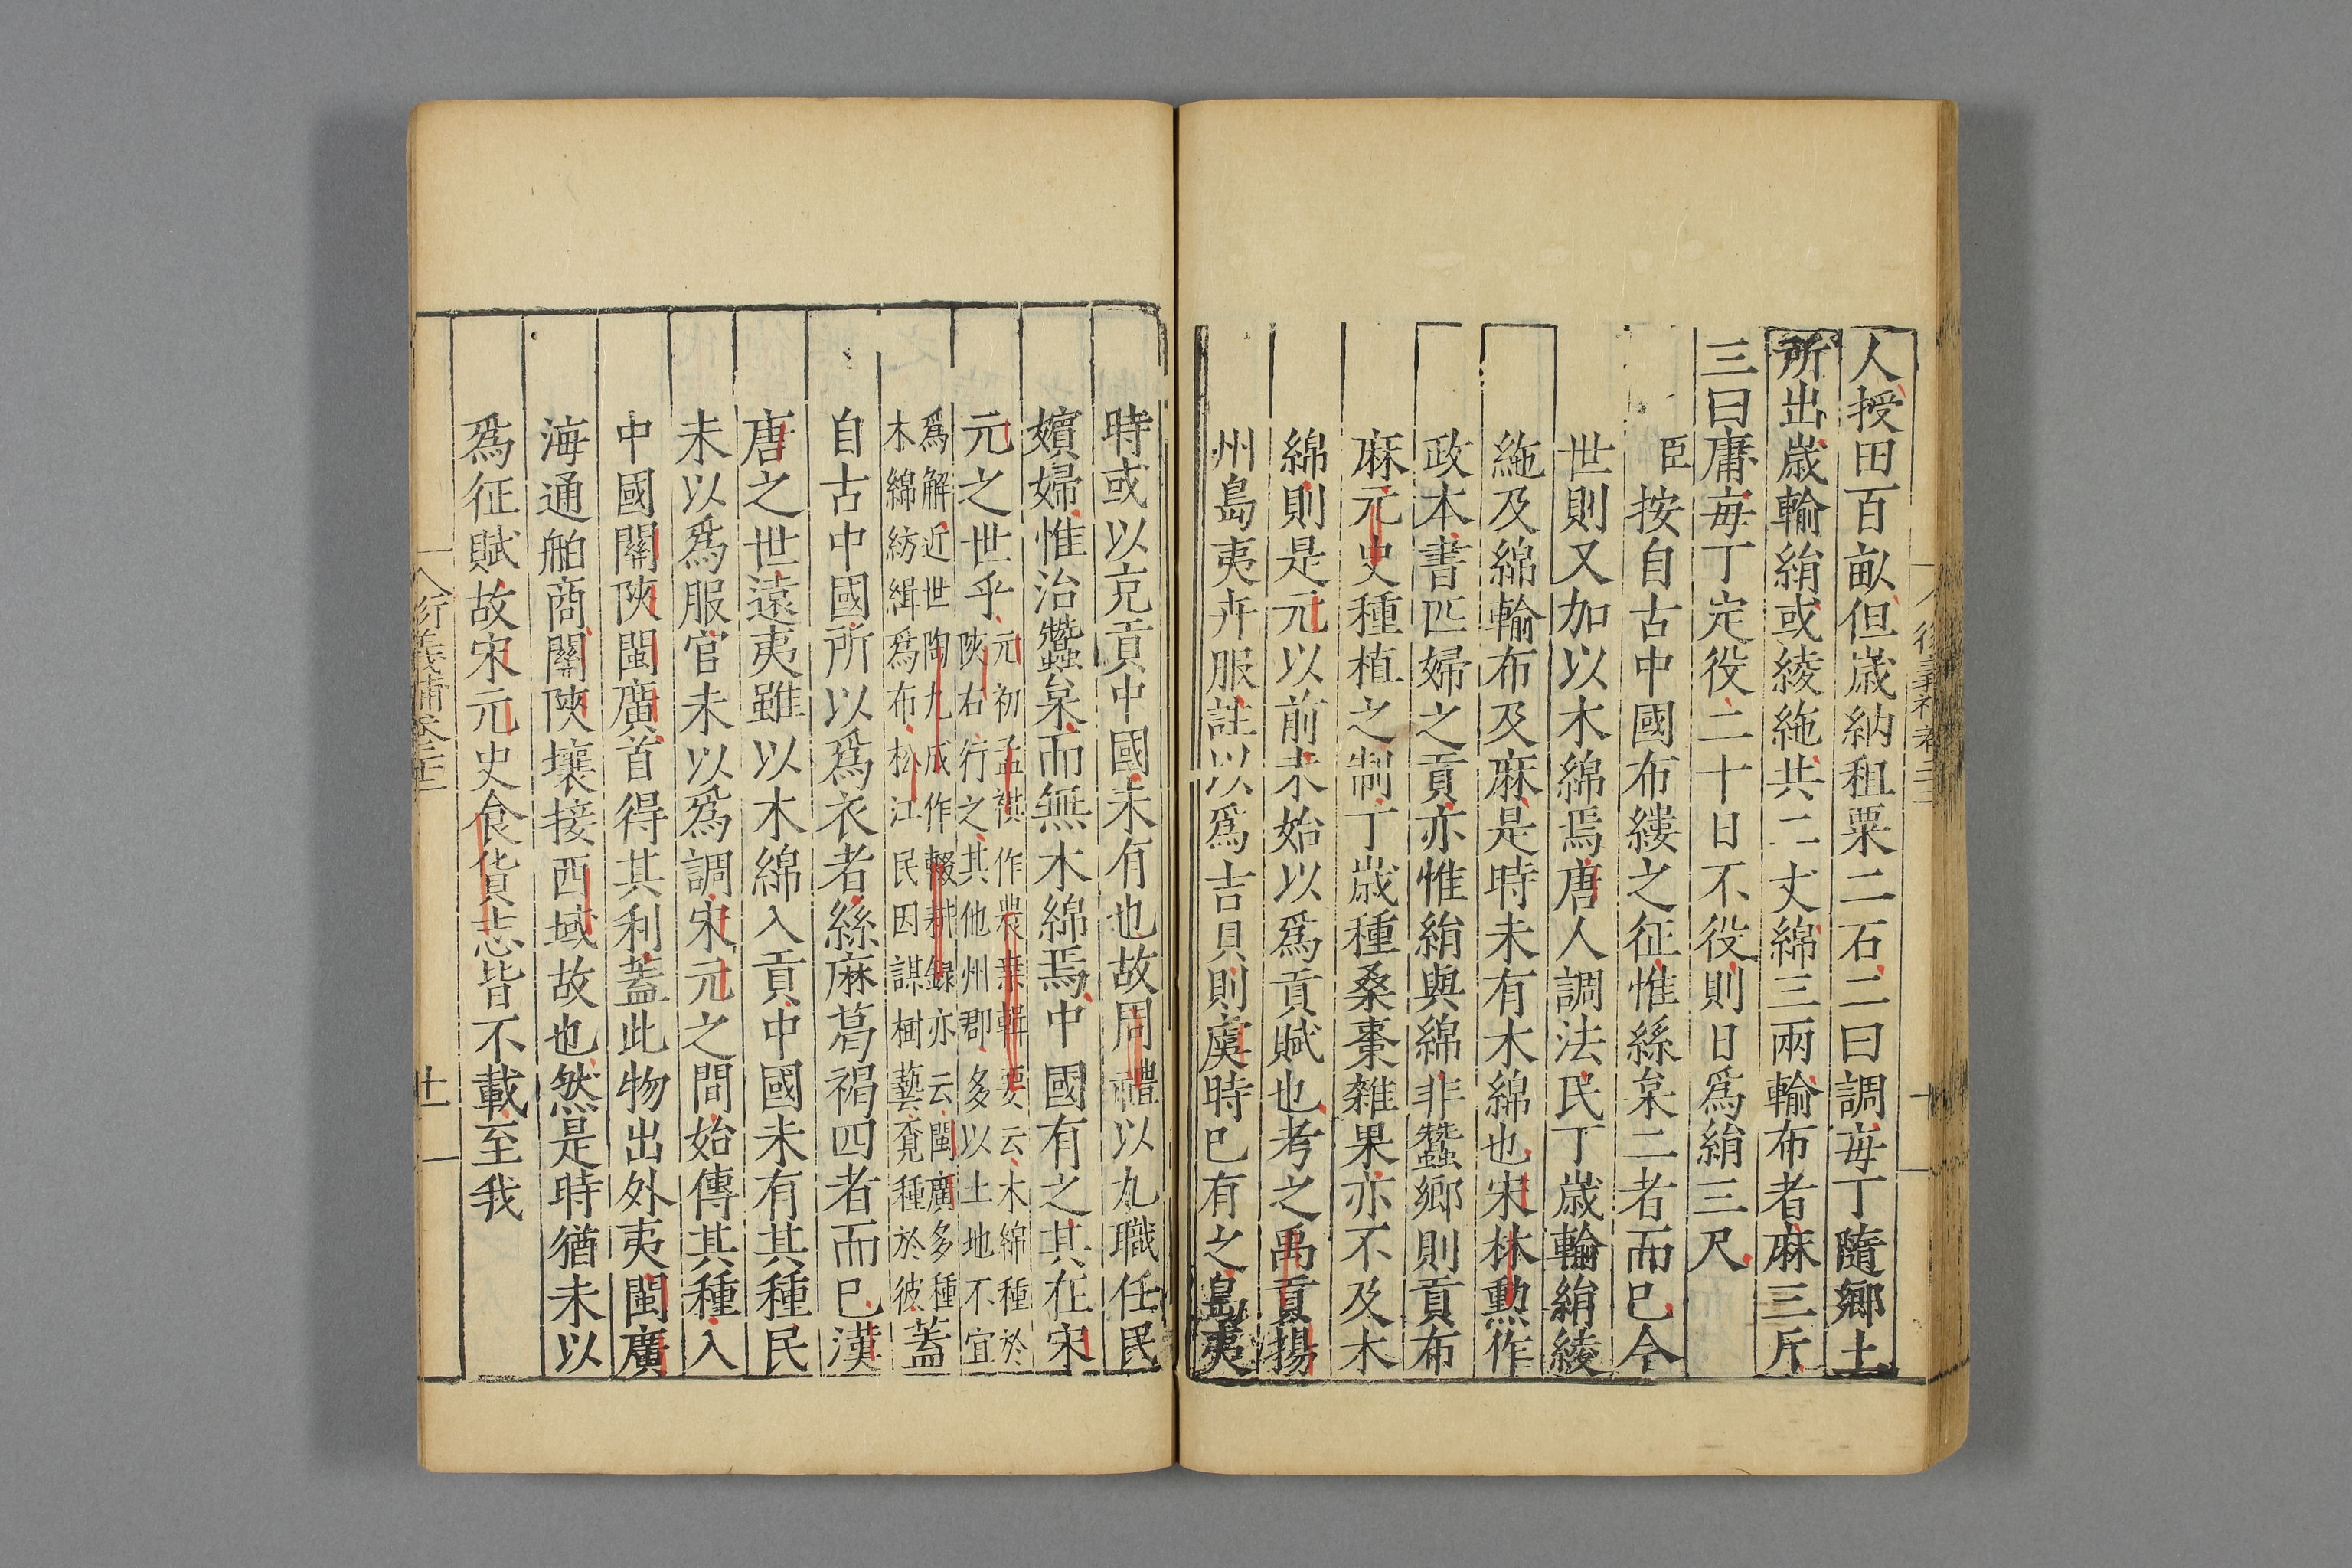 人授田百畝但歳納租粟二石二曰調毎丁隨郷土
所出歳輸絹或綾絁共二丈綿三兩輸布者麻三斤
三曰庸毎丁定役二十日不役則日爲絹三尺
臣按自古中國布縷之征惟絲枲二者而已今
世則又加以木綿焉唐人調法民丁歳輸絹綾
絁及綿輸布及麻是時未有木綿也宋林勲作
政本書匹婦之貢亦惟絹與綿非蠶郷則貢布
麻元史種植之制丁歳種桑棗雜果亦不及木
綿則是元以前未始以爲貢賦也考之禹貢揚
州島夷卉服註以爲吉貝則虞時已有之島夷
時或以充貢中國未有也故周禮以九職任民
嬪婦惟治蠶枲而無木綿焉中國有之其在宋
元之世乎元初孟祺作農桑輯要云木綿種於
陜右行之其他州郡多以土地不宜
爲解近世陶九成作輟耕録亦云閩廣多種
木綿紡緝爲布松江民因謀樹藝覓種於彼蓋
自古中國所以爲衣者絲麻葛褐四者而已漢
唐之世遠夷雖以木綿入貢中國未有其種民
未以爲服官未以爲調宋元之間始傳其種入
中國關陜閩廣首得其利蓋此物出外夷閩廣
海通舶商關陜壤接西域故也然是時猶未以
爲征賦故宋元史食貨志皆不載至我
衍義補卷二十二
十一